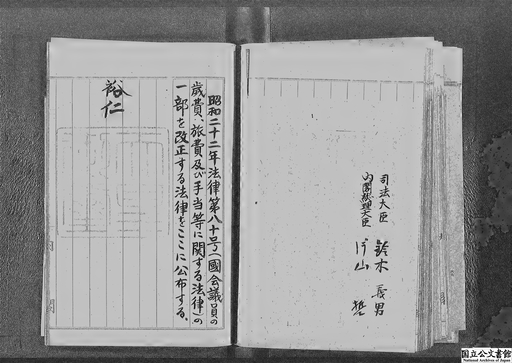 昭和二十二年法律第八十号(國会議員の
歳費、旅費及び手当等に関する法律)の
一部を改正する法律をここに公布する。
裕仁
司法大臣 鈴木義男
内閣総理大臣 片山哲
国立公文書館
National Archives of Japan